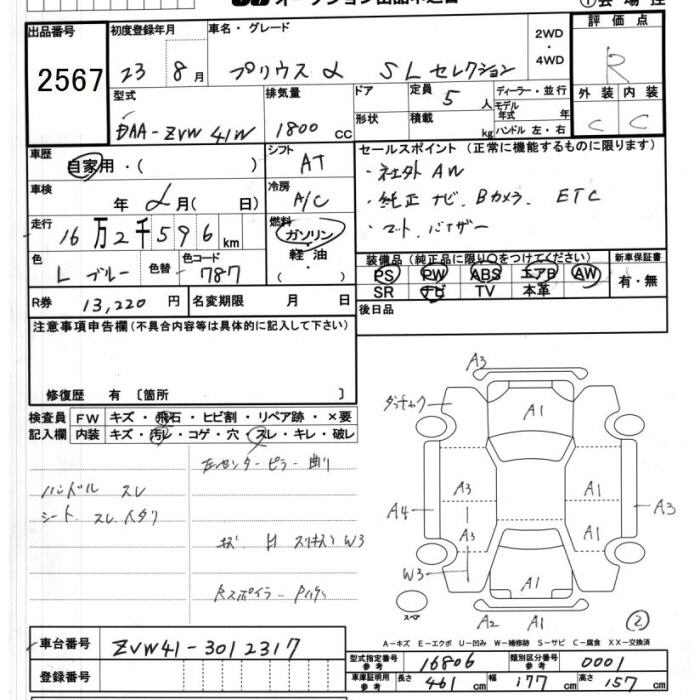 出品番号 2567
初度登録年月 23 8月
車名・グレード プリウスα SLセレクション
2WD・4WD
評価点 R
外装 内装
C C
型式 DAA-ZVW41W
排気量 1800 CC
ドア 形状
定員 5 人
積載 kg
ディーラー・並行
モデル年式 年
ハンドル 左・右
車歴 自家用・( )
シフト AT
セールスポイント (正常に機能するものに限ります)
・社外AW
・純正ナビ. Bカメラ. ETC
・マット. バイザー
車検 年 月( 日)
冷房 A/C
走行 16万2千596km
燃料 ガソリン・軽油・( )
色 Lブルー 色替
色コード 787
装備品 (純正品に限り○をつけてください)
新車保証書
PS PW ABS エアB AW
有・無
SR ナビ TV 本革
R券 13,220円
名変期限 月 日
後日品
注意事項申告欄 (不具合内容等は具体的に記入して下さい)
修復歴 有 〔箇所 〕
検査員記入欄
FW キズ・飛石・ヒビ割・リペア跡・×要
内装 キズ・汚レ・コゲ・穴・スレ・キレ・破レ
左センターピラー曲り
ハンドル スレ
シート スレ
W3
A3
A1
A4 A3 A1 A3
A3 A1
W3 A1
スペア
A2 A1
2
A-キズ E-エクボ U-凹み W-補修跡 S-サビ C-腐食 XX-交換済
車台番号 ZVW41-3012317
型式指定番号 参考 16806
類別区分番号 参考 0001
登録番号
車庫証明用 参考 長さ 461cm 幅 177cm 高さ 157cm